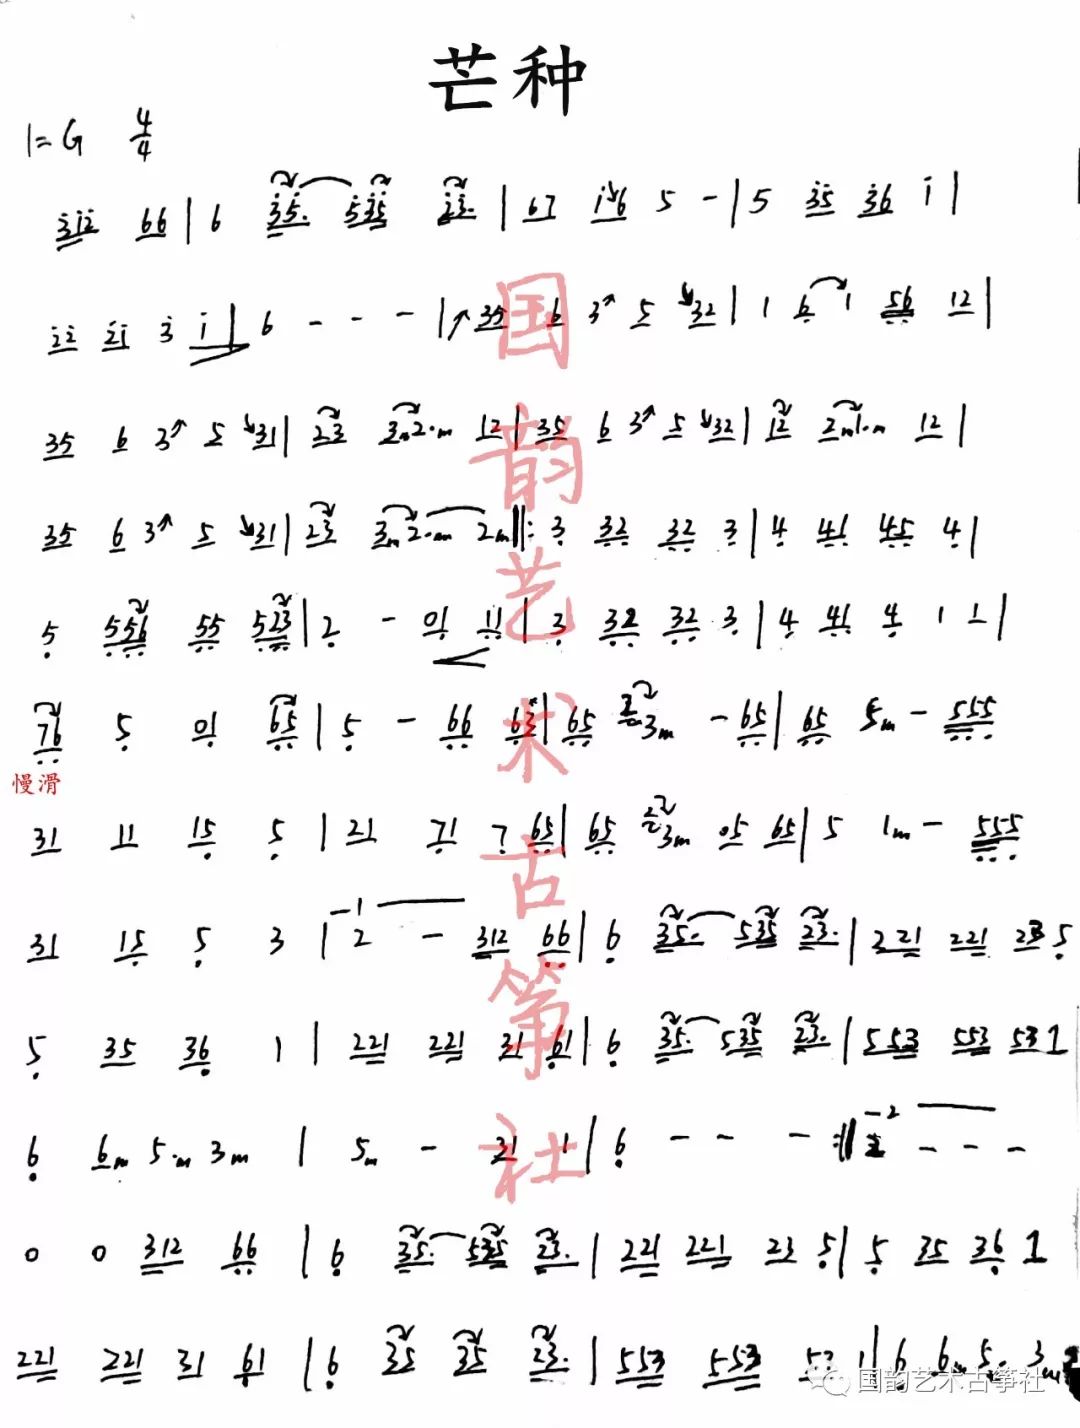 芒种
1=G 4/4
312 66 | 6 35. 535 23. | 67 156 5 - | 5 35 36 1 |
22 21 3 1 | 6 - - - | ↗35 6 3↗ 5 ↘32 | 1 6 1 56 12 |
35 6 3↗ 5 ↘31 | 23 3m2·m 12 | 35 6 3↗ 5 ↘32 | 12 2m1·m 12 |
35 6 3↗ 5 ↘31 | 23 3m2·m 2m ‖: 3 32 32 3 | 4 41 45 4 |
5 556 55 523 | 2 - 01 11 | 3 32 32 3 | 4 41 4 1 1 |
76 5 01 65 | 5 - 66 63 | 65 23m - 65 | 65 5m - 555
慢滑
31 11 15 5 | 21 71 7 65 | 65 23m 05 65 | 5 1m - 555
31 15 5 3 | 1 2 - 312 66 | 6 35. 535 23. | 221 221 23 5
5 35 36 1 | 221 221 31 61 | 6 35. 535 23. | 553 553 53 1
6 6m 5·m 3m | 5m - 21 1 | 6 - - - :‖ 2 - - -
0 0 312 66 | 6 35. 535 23. | 221 221 23 5 | 5 35 36 1
221 221 31 61 | 6 35 35 23. | 553 553 53 1 | 6 6m 5. 3m
国韵艺术古筝社
国韵艺术古筝社